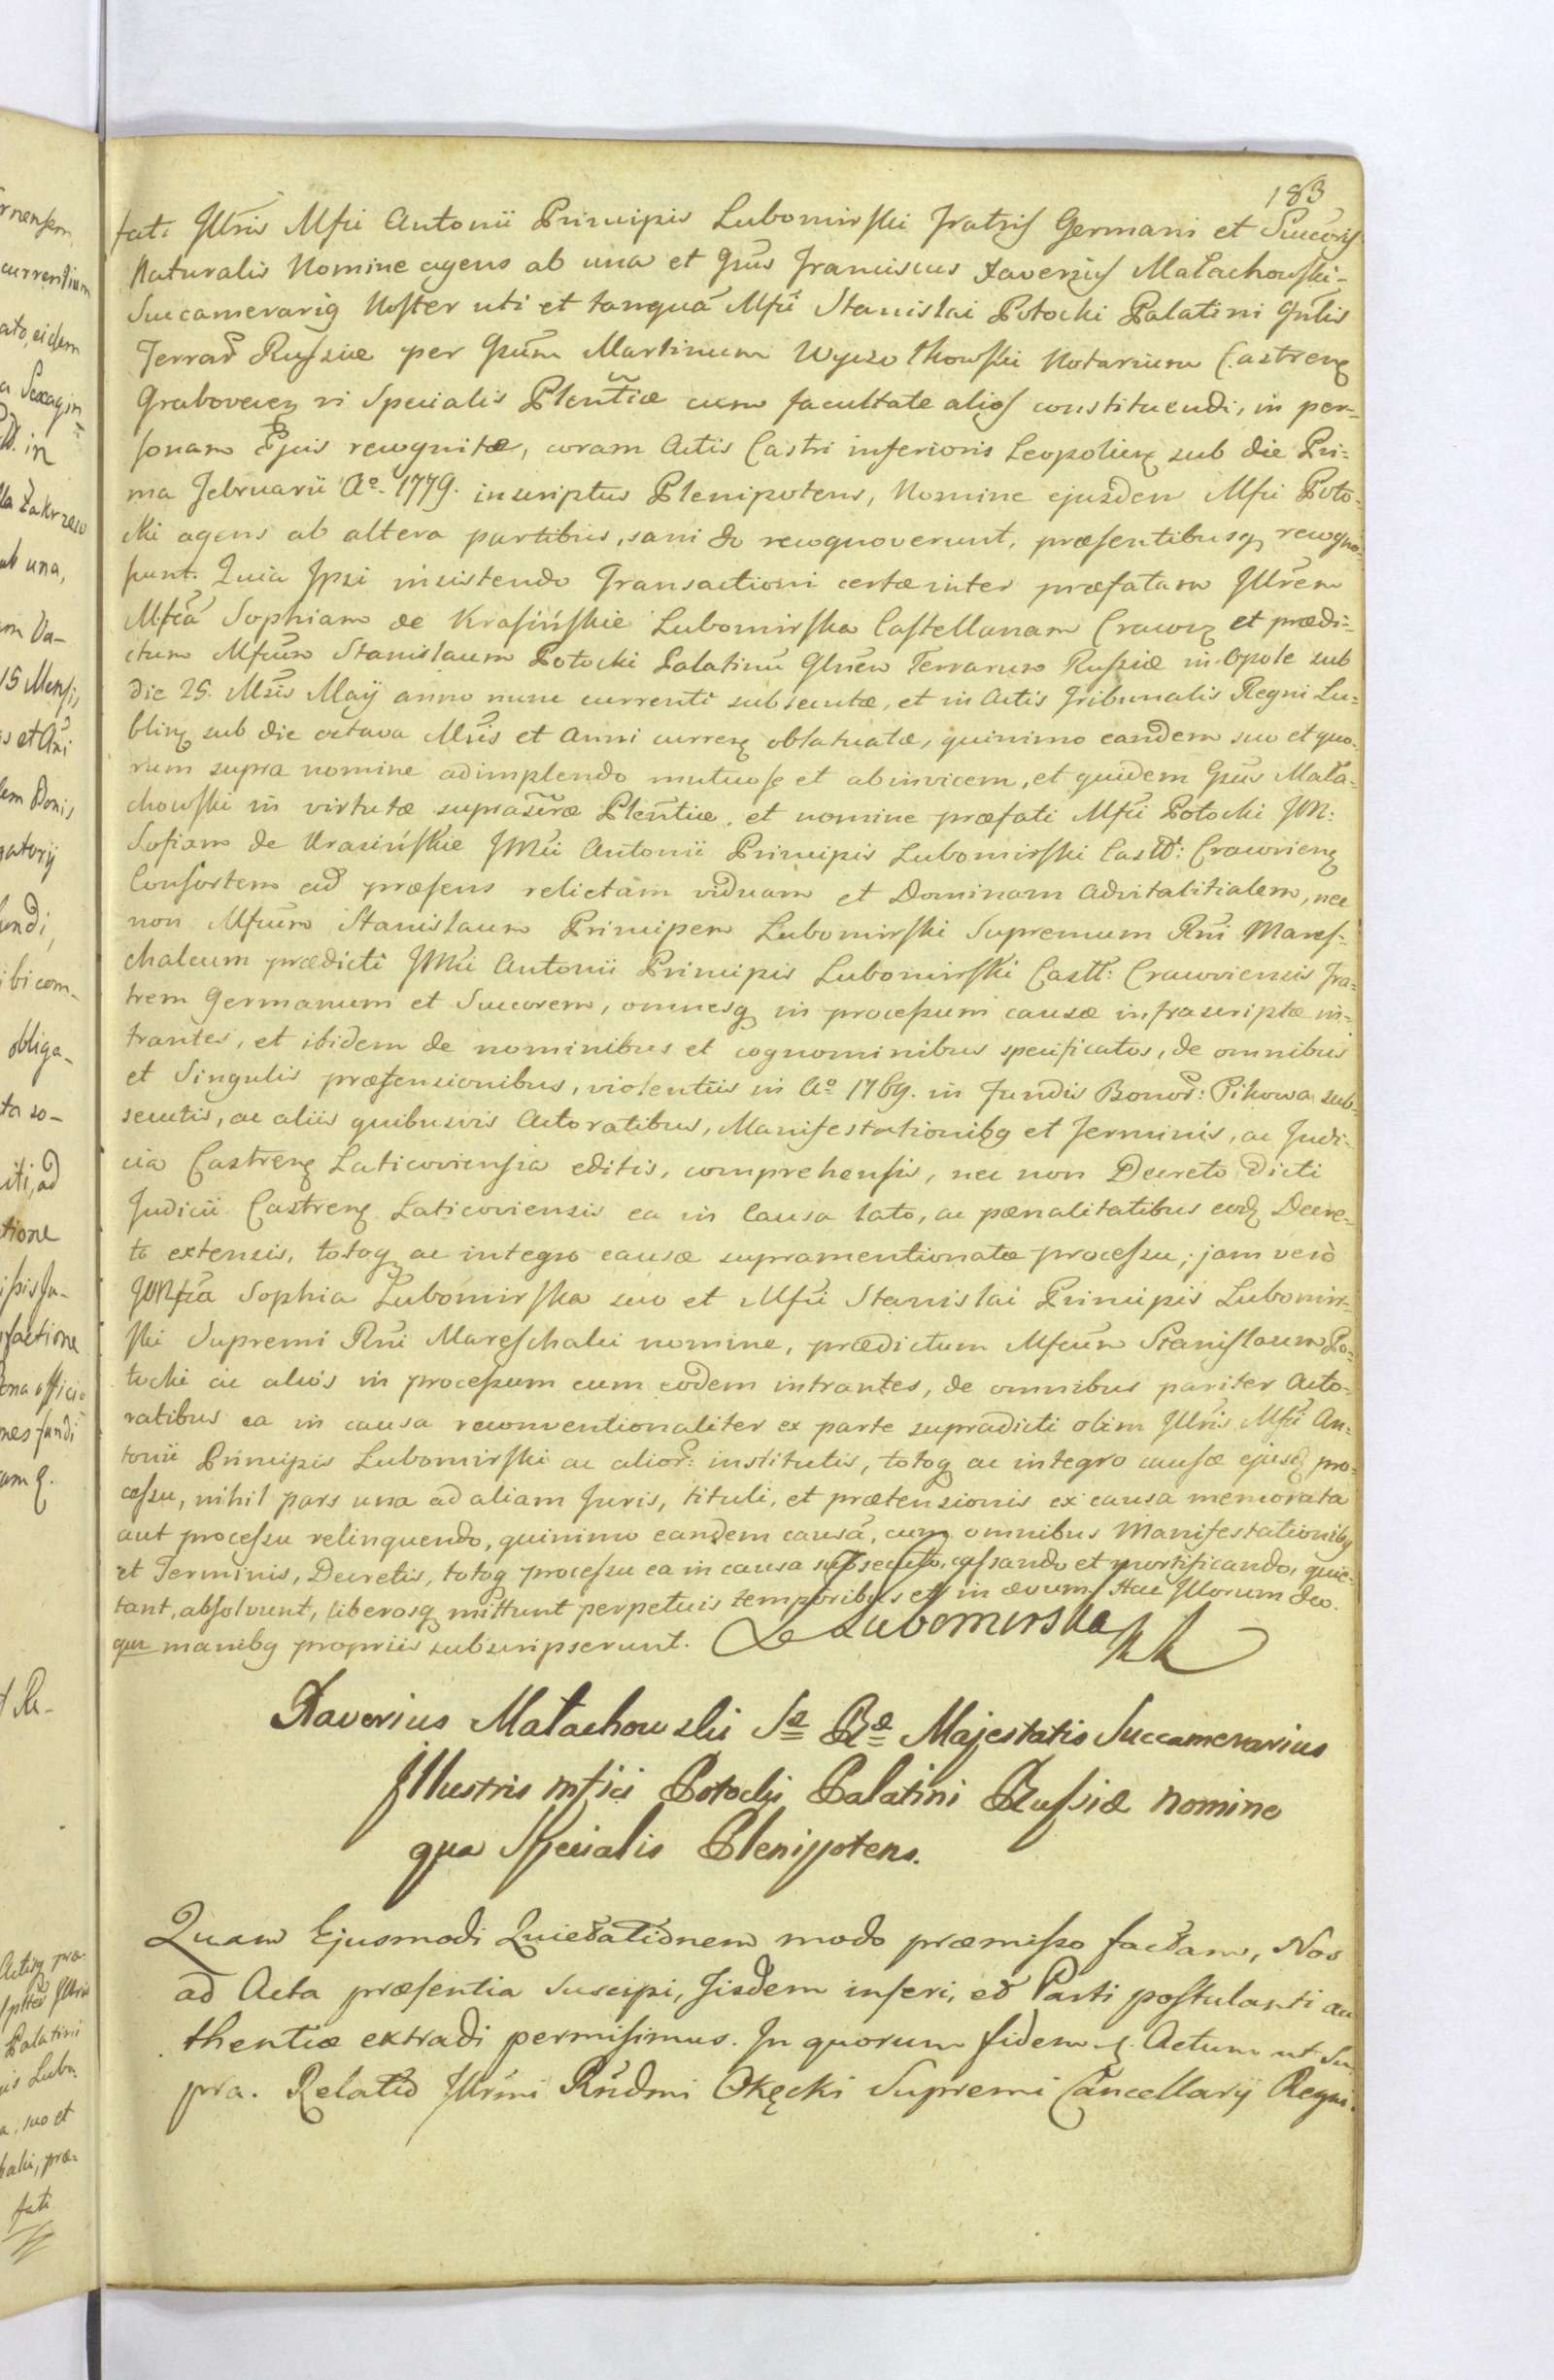 183
fati Jllris Mfci Antonii Principis Lubomirski Fratris Germani et Succoris
Naturalis Nomine agens ab una et Gnus Franciscus Xaverius Małachowski-
Succamerarig Noster uti et tanquã Mfci Stanislai Potocki Palatini Gñlis
Terrar Russiæ per Gnum Martinum Wyczothowski Notarium Castreng
Grabovecen vi Specialis Plentiæ cum facultate alios constituendi, in per=
sonam Ejus recognitæ, coram Actis Castri inferioris Leopolien sub die Pri=
ma Februarii Aº. 1779. inscriptus Plenipotens, Nomine ejusdem Mfci Poto=
cki agens ab altera partibus, sani &c recognoverunt, præsentibusq recogno=
scunt. Quia Ipsi insistendo Transactioni certæ inter præfatam Jllrem
Mfcã Sophiam de Krasińskie Lubomirska Castellanam Cracov et prædi=
ctum Mfcum Stanislaum Potocki Palatinũ Gluen Terrarum Russiæ in Opole sub
die 25. Msis Maÿ anno nunc currenti subsecutæ, et in Actis Tribunalis Regni Lu=
blin sub die octava Msis et Anni curren oblatuatæ, quinimo eandem suo et quo=
rum supra nomine adimplendo mutuo se et abinvicem, et quidem Gnus Mała=
chowski in virtute suprascræ Plentiæ. et nomine præfati Mfci Potocki JM:
Sofiam de Krasińskie JMci Antonii Principis Lubomirski Castt: Cracovien
Consortem ad præsens relictam viduam et Dominam Advitalitialem, nec
non Mfcum Stanislaum Principem Lubomirski Supremum Rni Mares=
chalcum prædicti JMci Antonii Principis Lubomirski Castt: Cracoviensis Fra=
trem Germanum et Succorem, omnesq in processum causæ infrascriptæ in=
trantes, et ibidem de nominibus et cognominibus specificatos, de omnibus
et Singulis prætensionibus, violentiis in Aº 1769. in Fundis Bonor: Pikowa sub=
secutis, ac aliis quibusvis Actoratibus, Manifestationibq et Terminis, ac Judi=
cia Castren Laticoviensia editis, comprehensis, nec non Decreto dicti
Judicii Castren Laticoviensis ea in Causa lato, ac pænalitatibus eod Decre=
to extensis, totoq ac integro causæ supramentionatæ processu; jam verò
JMfca Sophia Lubomirska suo et Mfci Stanislai Principis Lubomir=
ski Supremi Rni Mareschalci nomine, prædictum Mfcum Stanislaum Po=
tocki ac alios in processum cum eodem intrantes, de omnibus pariter Acto=
ratibus ea in causa reconventionaliter ex parte supradicti olim Jllris Mfci An=
tonii Principis Lubomirski ac alior: institutis, totoq ac integro causæ ejusd pro=
cessu, nihil pars una ad aliam Juris, tituli, et prætensionis ex causa memorata
aut processu relinquendo, quinimo eandem causã, cum omnibus Manifestationibq
et Terminis, Decretis, totoq processu ea in causa subsecuto, cassando et mortificando, quie=
tant, absolvunt, liberosq mittunt perpetuis temporibus et in ævum. Hac Jllorum deo.
que manibq propriis subscripserunt. Lubomirska
Xaverius Małachowski Sæ Ræ Majestatis Succamerarius
Jllustris mfici Potocki Palatini Russiæ nomine
qua Specialis Plenipotens.
Quam Ejusmodi Quietationem modo præmisso factam, Nos
ad Acta præsentia Suscipi, Jisdem inseri, et Parti postulanti au
thenticæ extradi permisimus. In quorum fidem &. Actum ut Su
pra. Relatio Jllrmi Rndmi Okęcki Supremi Cancellarÿ Regni.